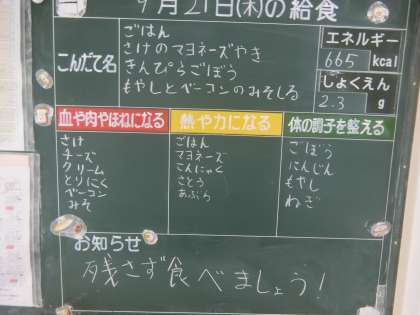 9月21日(木)の給食
こんだて名
ごはん
さけのマヨネーズやき
きんぴらごぼう
もやしとベーコンのみそしる
エネルギー
665 kcal
しょくえん
2.3 g
血や肉やほねになる
さけ
チーズ
クリーム
とりにく
ベーコン
みそ
熱や力になる
ごはん
マヨネーズ
こんにゃく
さとう
あぶら
体の調子を整える
ごぼう
にんじん
もやし
ねぎ
お知らせ
残さず食べましょう!